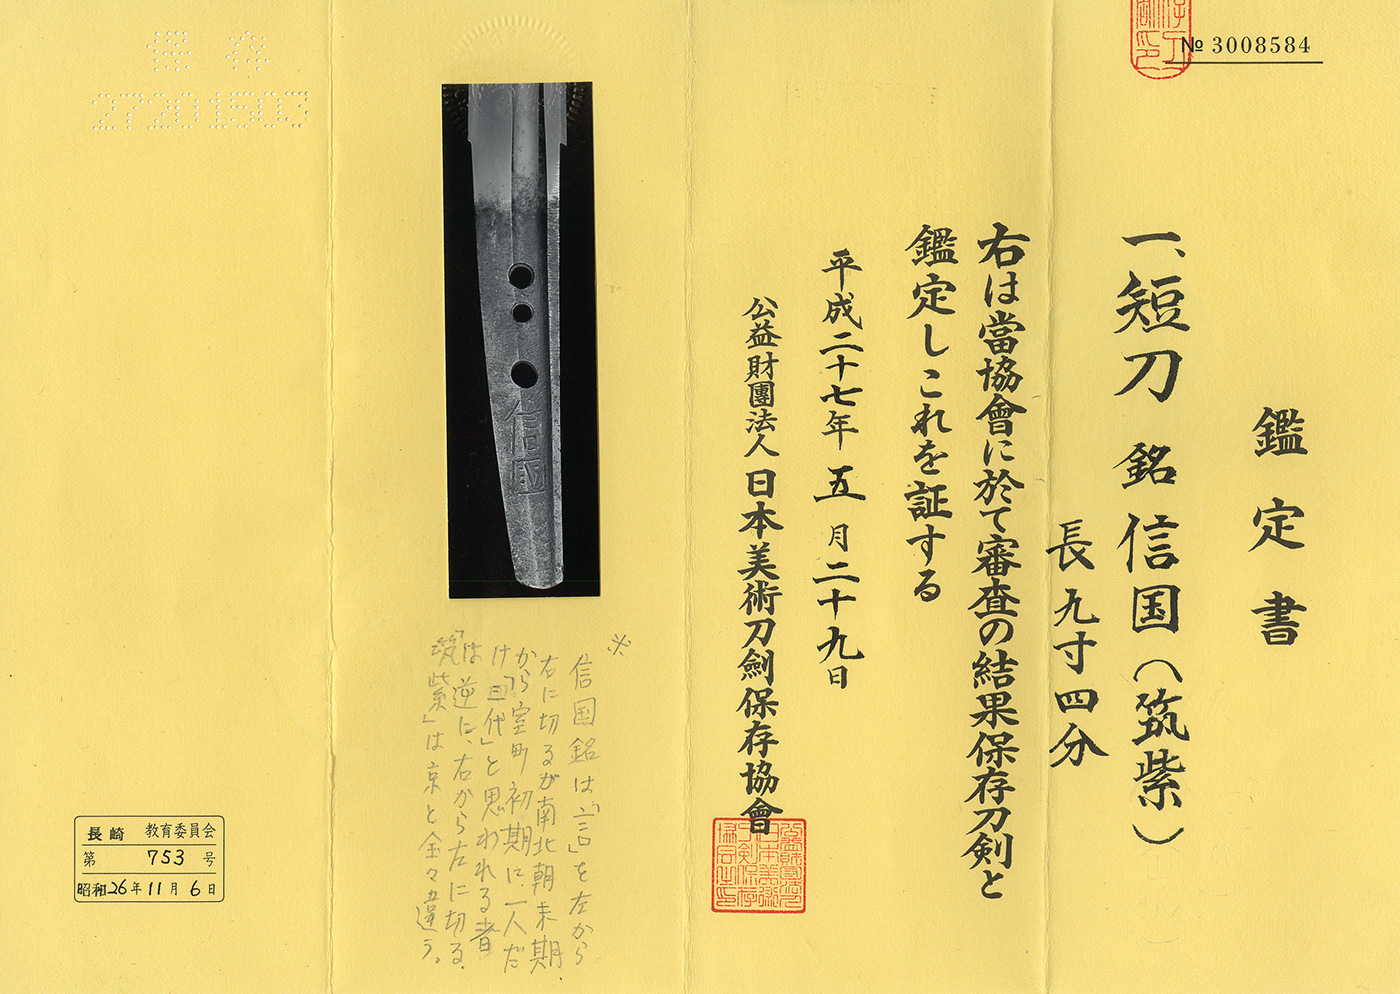 № 3008584
鑑定書
一、短刀 銘 信国(筑紫)
長九寸四分
右は當協會に於て審査の結果保存刀剣と
鑑定しこれを証する
平成二十七年五月二十九日
公益財團法人日本美術刀劍保存協會
信國
※
信国銘は「言」を左から
右に切るが南北朝末期
から室町初期に、一人だ
け「三代」と思われる者
は逆に、右から左に切る。
「筑紫」は京と全々違う。
保存
27201503
長崎 教育委員会
第 753 号
昭和26年11月6日